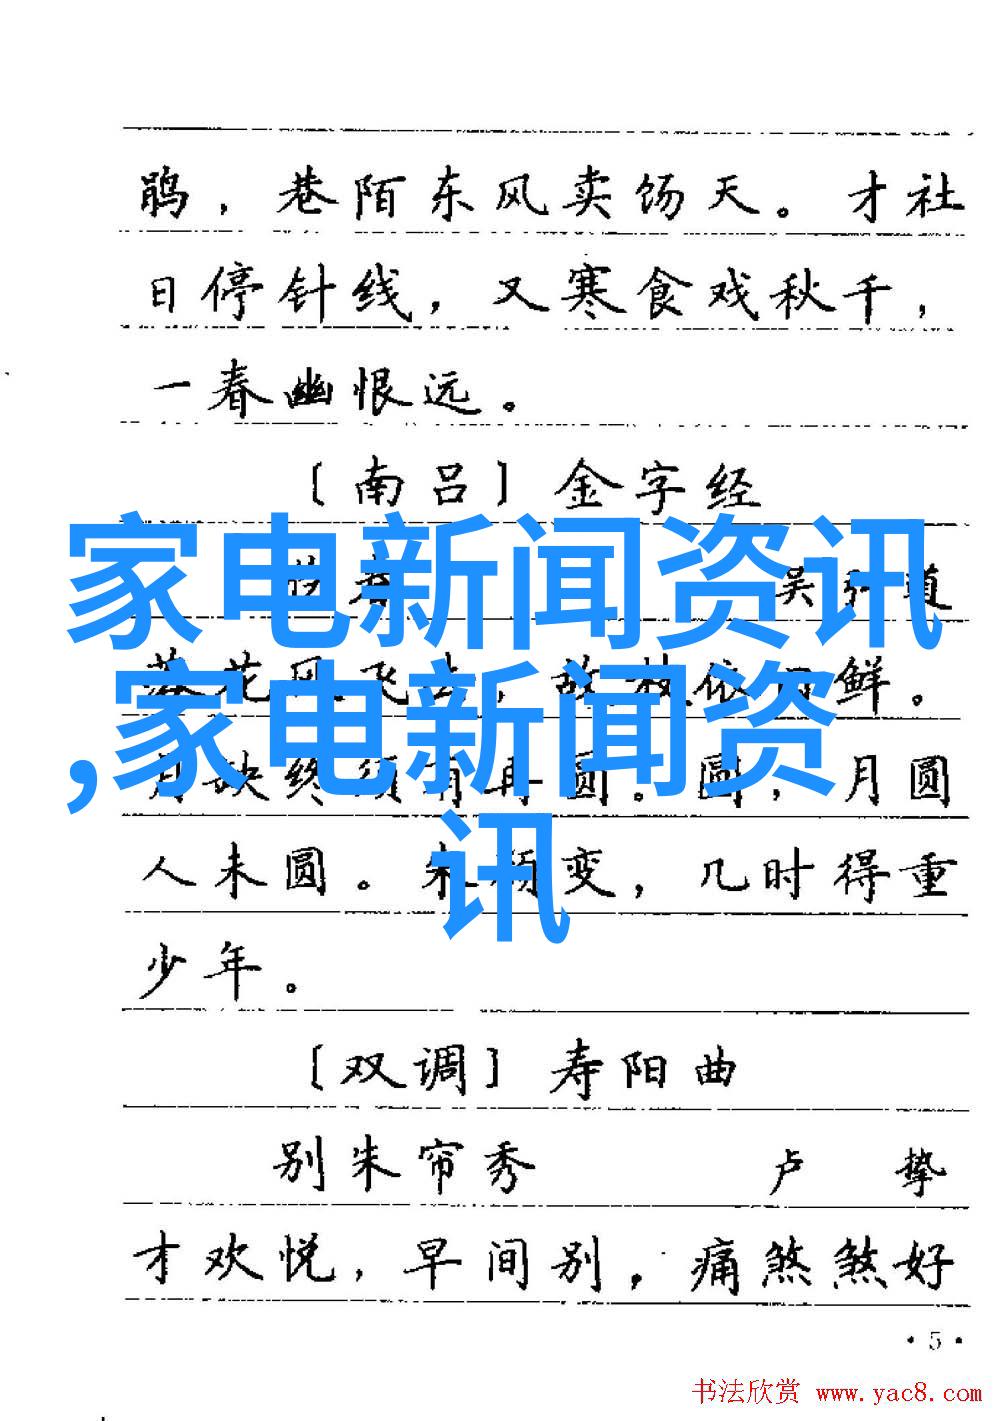 鹃，巷陌东风卖饧天。才社
日停针线，又寒食戏秋千，
一春幽恨远。
〔南吕〕金字经
吴 道
花 飞 ，故枝依 鲜。
月缺终须有再圆。圆，月圆
人未圆。朱颜变，几时得重
少年。
〔双调〕寿阳曲
别朱帘秀 卢 挚
才欢悦，早间别，痛煞煞好
·5·
家电新闻资讯
,家电新闻资
讯
书法欣赏 www.yac8.com